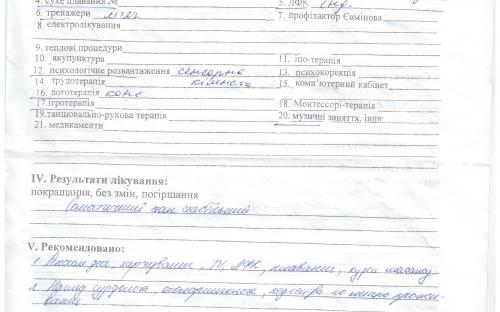 4. сухе плавання № 5. ЛФК інд.
6. тренажери 7. профілактор Євмінова
8. електролікування
9. теплові процедури
10. акупунктура 11. іпо-терапія
12. психологічне розвантаження сенсорна 13. психокорекція
14. трудотерапія кімната 15. комп'ютерний кабінет
16. логотерапія конс
17. ігротерапія 18. Монтессорі-терапія
19. танцювально-рухова терапія 20. музичні заняття, інше
21. медикаменти
IV. Результати лікування:
покращання, без змін, погіршання
Соматичний стан стабільний
V. Рекомендовано:
1. Режим дня, харчування, ЛФК, плавання, курси масажу
2. Нагляд сурдолога, отоларинголога, педіатра по місцю прожи-
вання